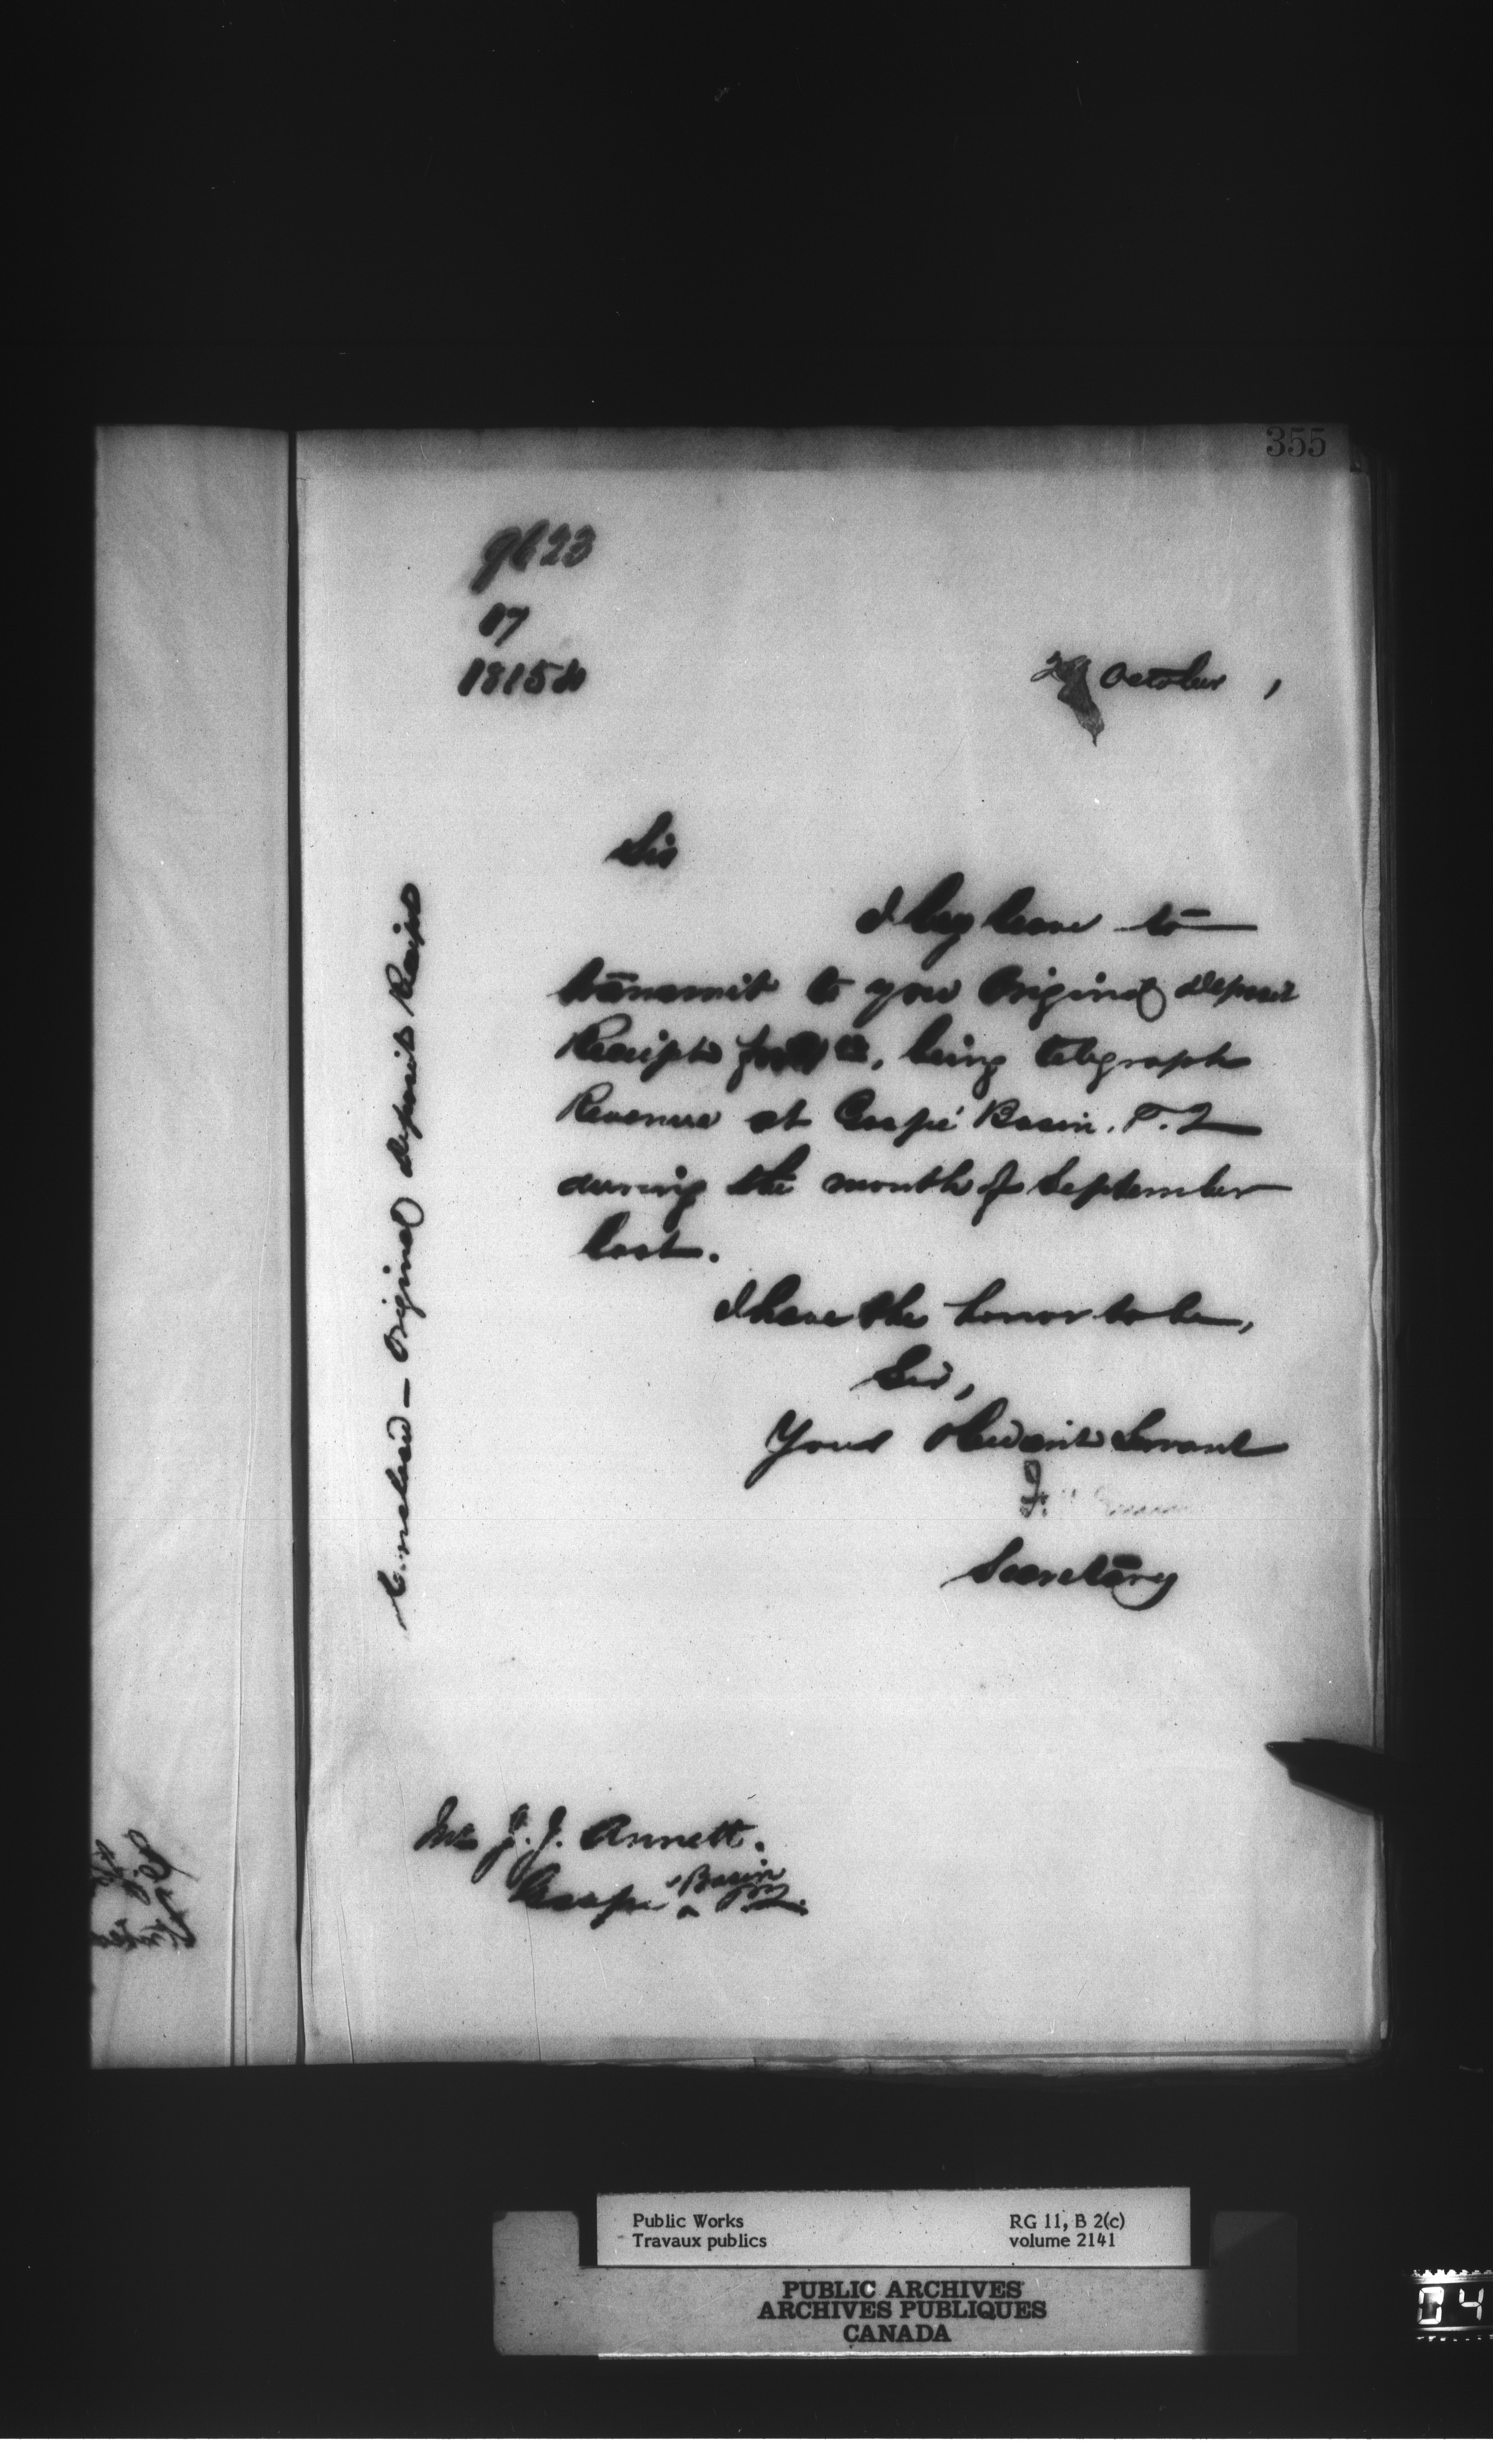 355
9623
07
181580
29 October ,
Sir
I beg leave to
transmit to you Original deposit
Receipt for being telegraph
Revenue at Gaspé Basin. P.Q
during the month of September
last.
I have the honor to be,
Sir,
Your Obedient Servant
Secretary
Enclosed - Original deposit Receipt
Mr J. J. Annett.
Gaspé Basin
P.Q.
Public Works
Travaux publics
RG 11, B 2(c)
volume 2141
PUBLIC ARCHIVES
ARCHIVES PUBLIQUES
CANADA
04